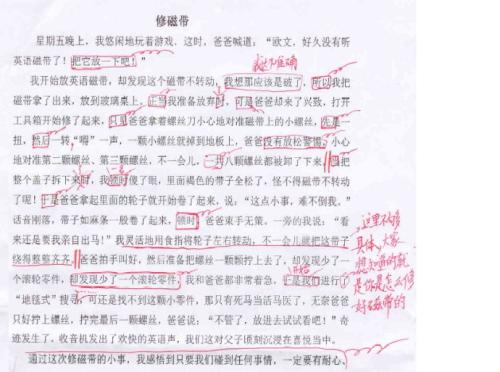 修磁带
星期五晚上，我悠闲地玩着游戏．这时，爸爸喊道：“欧文，好久没有听
英语磁带了！把它放一下吧！”
表达不准确
我开始放英语磁带，却发现这个磁带不转动，我想那应该是破了，所以我把
磁带拿了出来，放到玻璃桌上，正当我准备放弃时，可是爸爸却来了兴致，打开
工具箱开始修了起来，只见爸爸拿着螺丝刀小心地对准磁带上的小螺丝，先是一
扭，然后一转，“嘚”一声，一颗小螺丝就掉到地板上，爸爸没有放松警惕，小心
地对准第二颗螺丝、第三颗螺丝，不一会儿，一共八颗螺丝都被卸了下来，把
整个盖子拆下来时，我顿时傻了眼，里面褐色的带子全松了，怪不得磁带不转动
了呢！于是爸爸拿起里面的轮子就开始卷了起来，说，“这点小事，难不倒我。”
话音刚落，带子如麻条一般卷了起来，顿时，爸爸束手无策。一旁的我说：“看
来还是要我亲自出马！”我灵活地用食指将轮子左右转动，不一会儿就把这带了
绕得整整齐齐。爸爸拍手叫好，然后准备把螺丝一颗颗拧上去了，却发现少了一
个滚轮零件，却发现少了一个滚轮零件，我和爸爸都非常着急，于是我们进行了
“地毯式”搜寻，可还是找不到这颗小零件，那只有死马当活马医了，无奈爸爸
只好拧上螺丝，拧完最后一颗螺丝，爸爸说：“不管了，放进去试试看吧！”奇
迹发生了，收音机发出了欢快的英语声，我们这对父子顷刻沉浸在喜悦当中。
通过这次修磁带的小事，我感悟到只要我们碰到任何事情，一定要有耐心、
这里不够
具体，大家
想知道的就
是你是怎么修
好磁带的